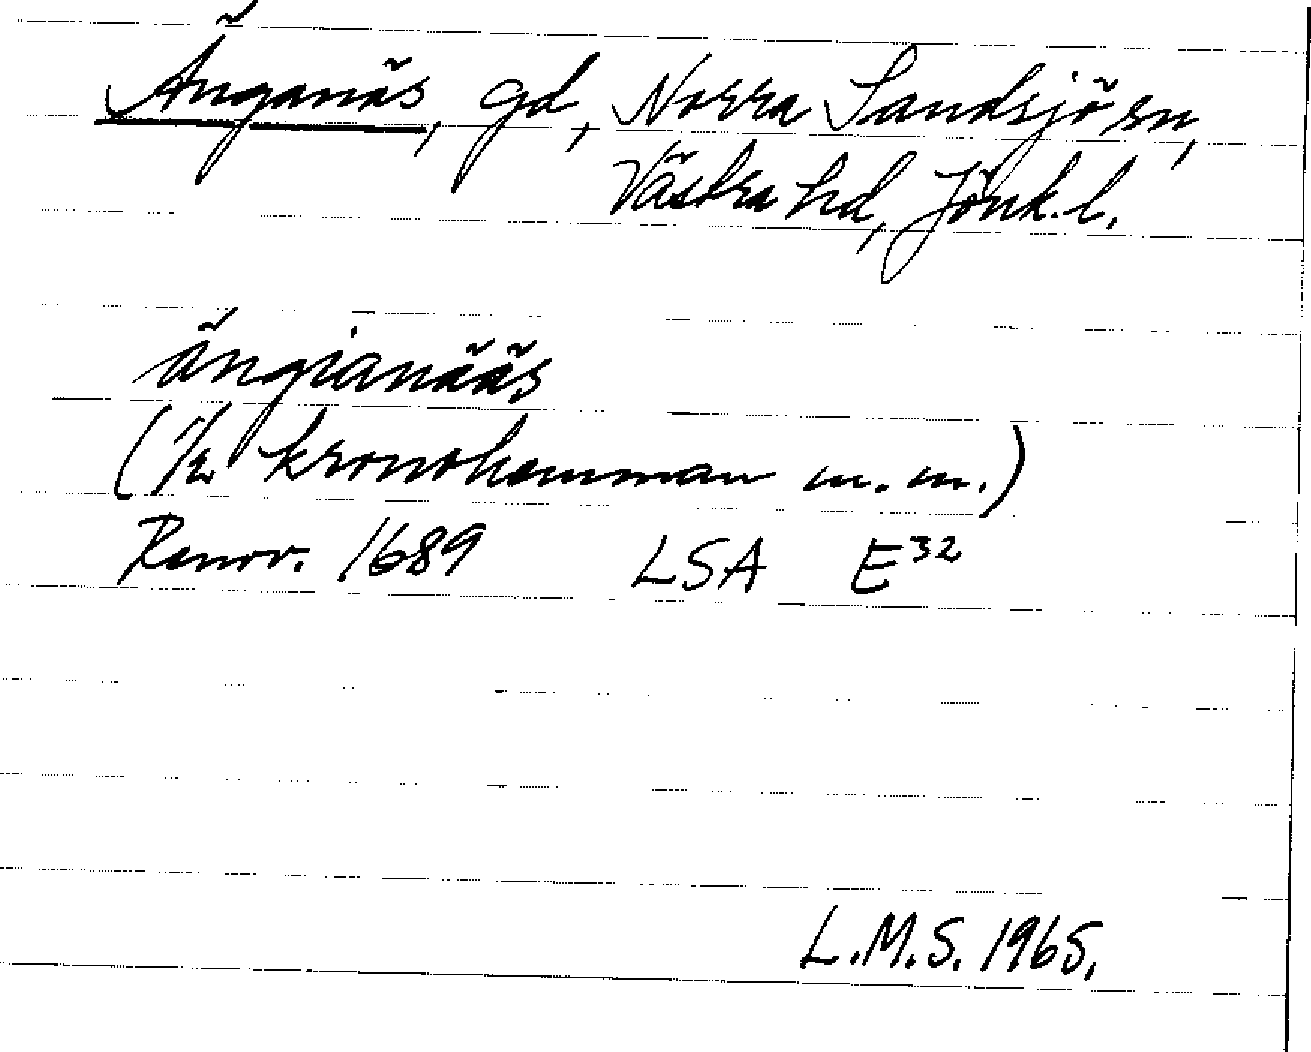 Änganäs, gd, Norra Sandsjö sn,
Västra hd, Jönk. l.
ängianääs
(1/2 kronohemman m.m.)
Renov. 1689 LSA E32
L.M.S. 1965.